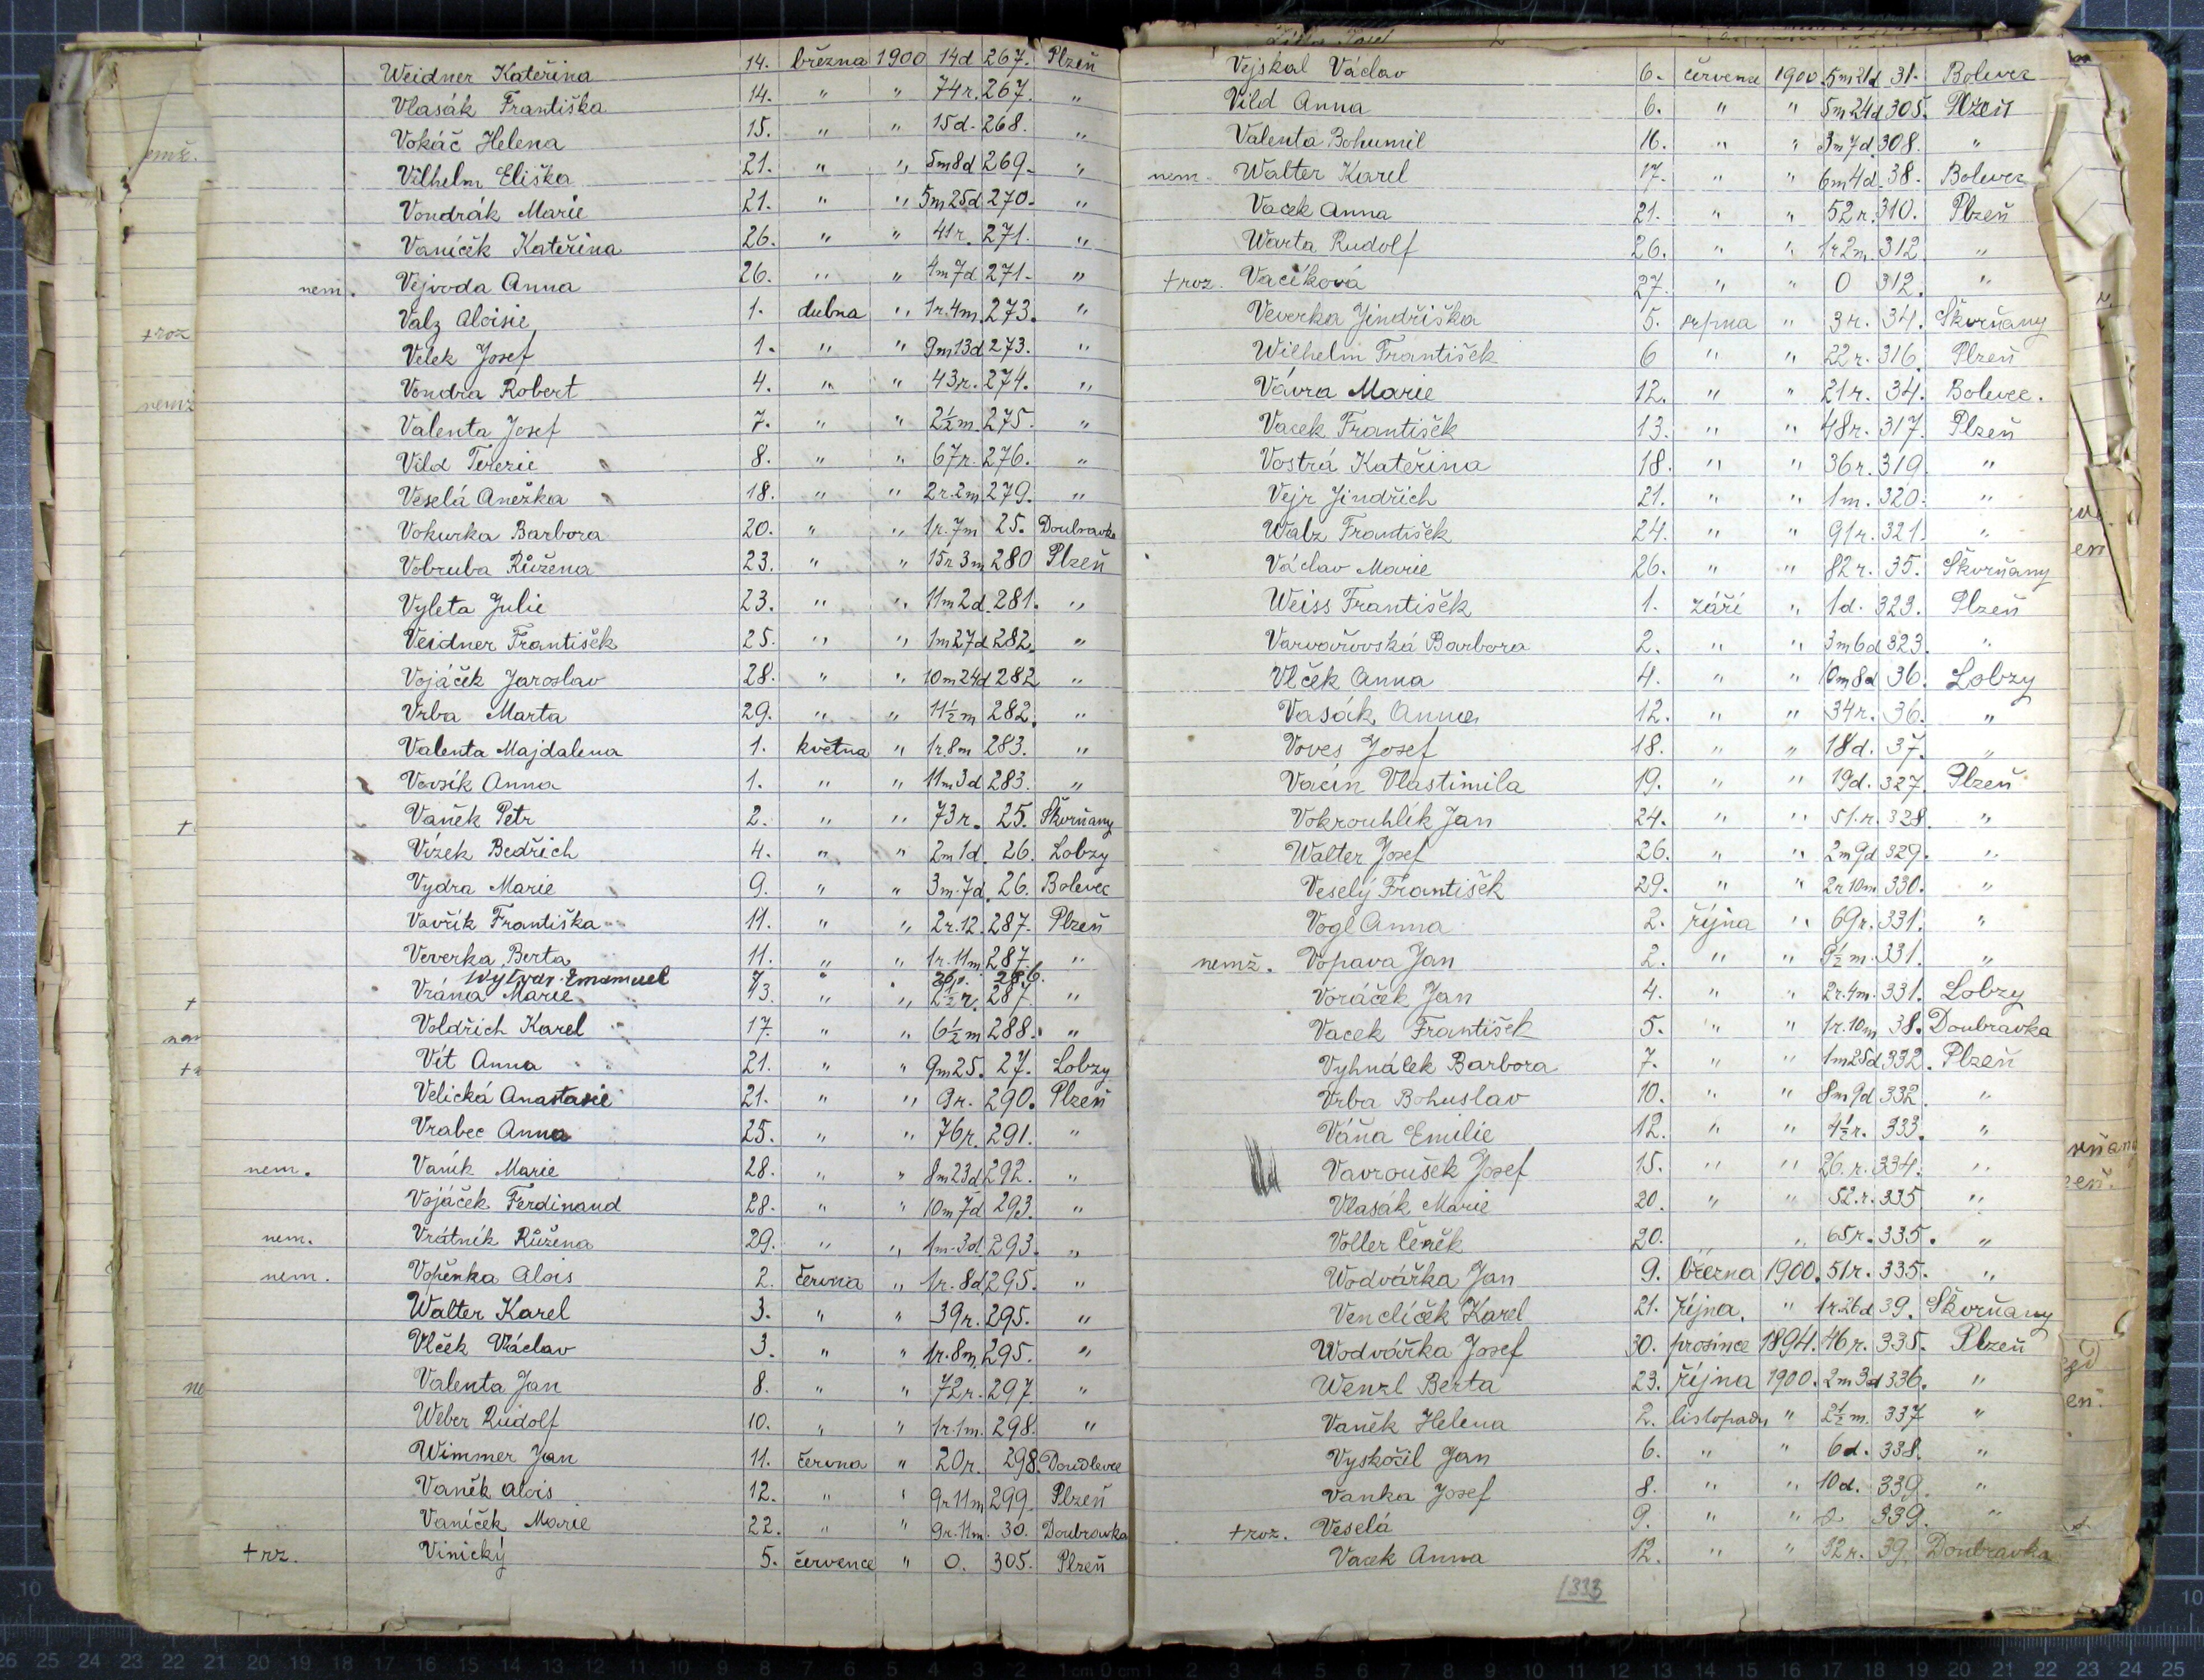 Weidner Kateřina 14. března 1900 14d 267. Plzeň
Vlasák Františka 14. " " 74r. 267. "
Vokáč Helena 15. " " 15d. 268. "
Vilhelm Eliška 21. " " 5m8d 269. "
Vondrák Marie 21. " " 5m25d 270. "
Vaníček Kateřina 26. " " 41r. 271. "
nem. Vejvoda Anna 26. " " 4m7d. 271. "
Valz Aloisie 1. dubna " 1r.4m. 273. "
Velek Josef 1. " " 9m13d 273. "
Vondra Robert 4. " " 43r. 274. "
Valenta Josef 7. " " 2½m. 275. "
Vild Terezie 8. " " 67r. 276. "
Veselá Anežka 18. " " 2r.2m 279. "
Vokurka Barbora 20. " " 1r.7m 25. Doubravka
Vobruba Růžena 23. " " 15r3m 280 Plzeň
Vyleta Julie 23. " " 11m2d. 281. "
Veidner František 25. " " 1m27d 282. "
Vojáček Jaroslav 28. " " 10m24d 282 "
Vrba Marta 29. " " 11½m 282. "
Valenta Majdalena 1. května " 1r.8m 283. "
Vovsík Anna 1. " " 11m3d 283. "
Vaněk Petr 2. " " 73r. 25. Škvrňany
Vízek Bedřich 4. " " 2m1d. 26. Lobzy
Vydra Marie 9. " " 3m.7d. 26. Bolevec
Vavřík Františka 11. " " 2r.12. 287. Plzeň
Veverka Berta 11. " " 1r.11m. 287. "
Wytvar Emanuel 7. " " 286.
Vrána Marie 13. " " 2½r. 287 "
Voldřich Karel 17. " " 6½m 288. "
Vít Anna 21. " " 9m25. 27. Lobzy
Velická Anastasie 21. " " 9r. 290. Plzeň
Vrabec Anna 25. " " 76r. 291. "
nem. Vaník Marie 28. " " 8m23d 292. "
Vojáček Ferdinand 28. " " 10m7d 293. "
nem. Vrátník Růžena 29. " " 1m.3d. 293. "
nem. Vopěnka Alois 2. června " 1r.8d 295. "
Walter Karel 3. " " 39r. 295. "
Vlček Václav 3. " " 1r.8m 295. "
Valenta Jan 8. " " 72r. 297. "
Weber Rudolf 10. " " 1r.1m. 298. "
Wimmer Jan 11. června " 20r. 298. Doudlevce
Vaněk Alois 12. " " 9r11m 299. Plzeň
Vaníček Marie 22. " " 9r.11m. 30. Doubravka
+ rz. Vinický 5. července " 0. 305. Plzeň
Vejskal Václav 6. července 1900. 5m21d 31. Bolevec
Vild Anna 6. " " 5m24d 305. Plzeň
Valenta Bohumil 16. " " 3m7d. 308. "
nem. Walter Karel 17. " " 6m4d. 38. Bolevec
Vacek Anna 21. " " 52r. 310. Plzeň
Warta Rudolf 26. " " 1r2m. 312 "
+roz. Vacíková 27. " " 0 312. "
Veverka Jindřiška 5. srpna " 3r. 34. Škvrňany
Wilhelm František 6 " " 22r. 316. Plzeň
Vávra Marie 12. " " 21r. 34. Bolevec.
Vacek František 13. " " 48r. 317. Plzeň
Vostrá Kateřina 18. " " 36r. 319. "
Vejr Jindřich 21. " " 1m. 320. "
Walz František 24. " " 91r. 321. "
Václav Marie 26. " " 82r. 35. Škvrňany
Weiss František 1. září " 1d. 323. Plzeň
Varvařovská Barbora 2. " " 3m6d 323. "
Vlček Anna 4. " " 10m8d 36. Lobzy
Vasák Anna 12. " " 34r. 36. "
Voves Josef 18. " " 18d. 37. "
Vacín Vlastimila 19. " " 19d. 327. Plzeň
Vokrouhlík Jan 24. " " 51.r. 328. "
Walter Josef 26. " " 2m9d 329. "
Veselý František 29. " " 2r10m 330. "
Vogl Anna 2. října " 69r. 331. "
nemž. Vopava Jan 2. " " 9½m. 331. "
Voráček Jan 4. " " 2r.4m. 331. Lobzy
Vacek František 5. " " 1r.10m 38. Doubravka
Vyhnálek Barbora 7. " " 1m25d 332. Plzeň
Vrba Bohuslav 10. " " 8m9d 332. "
Váňa Emilie 12. " " 4½r. 333. "
Vavroušek Josef 15. " " 26.r. 334. "
Vlasák Marie 20. " " 52.r. 335 "
Voller Čeněk 20. " 65r. 335. "
Wodvářka Jan 9. března 1900. 51r. 335. "
Venclíček Karel 21. října. " 1r.26d 39. Škvrňany
Wodvářka Josef 30. prosince 1894. 46r. 335. Plzeň
Wenzl Berta 23. října 1900. 2m3d 336. "
Vaněk Helena 2. listopadu " 2½m. 337 "
Vyskočil Jan 6. " " 6d. 338. "
Vanka Josef 8. " " 10d. 339. "
+roz. Veselá 9. " " 339. "
Vacek Anna 12. " " 32r. 39. Doubravka
1333